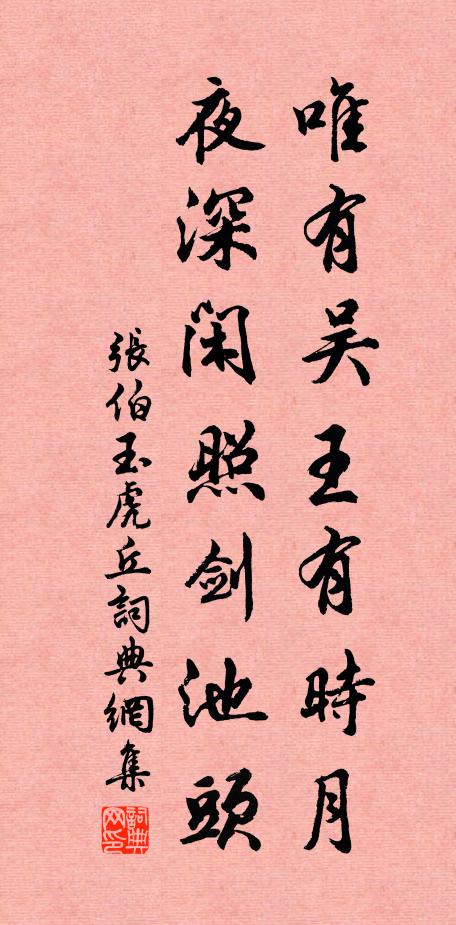 唯有吴王有時月
夜深閑照劍池頭
張伯玉虎丘詞典網集
詞典网印